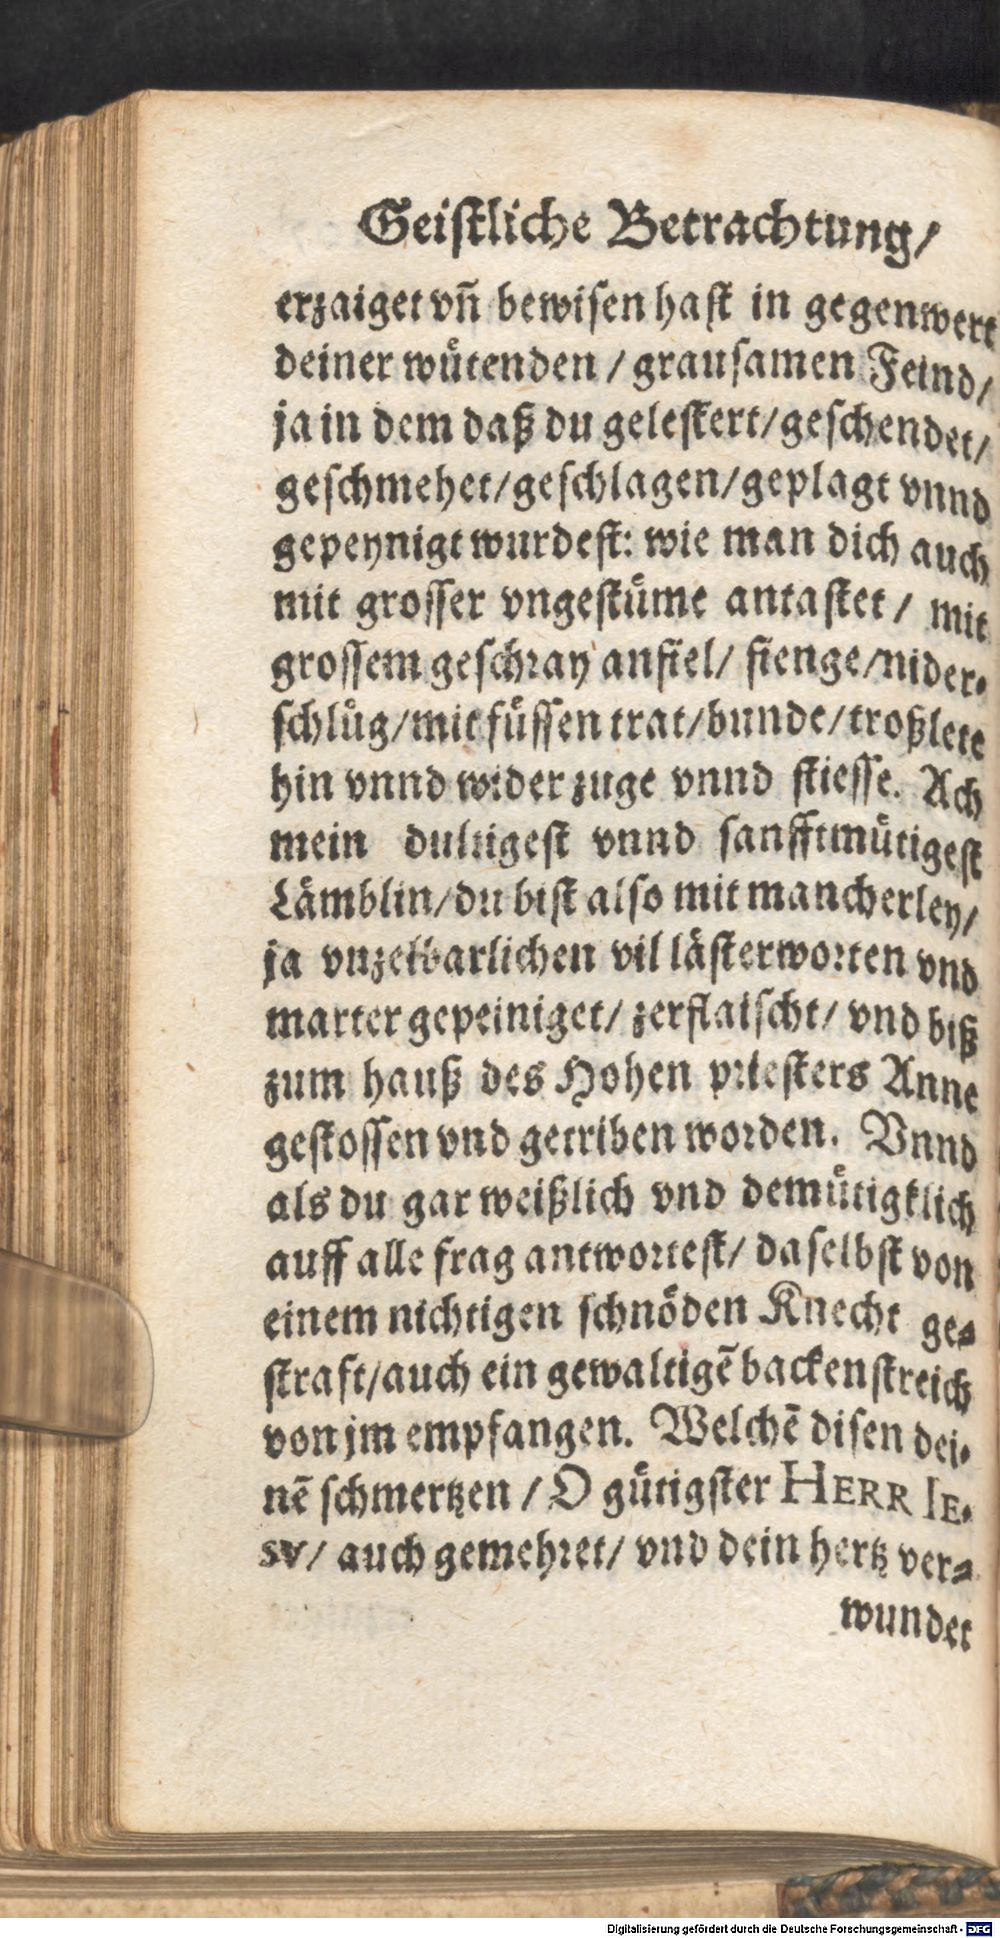 Geiſtliche Betrachtung/
erzaiget vn̄ bewiſen haſt in gegenwert
deiner wuͤtenden / grauſamen Feind/
ja in dem daß du geleſtert/geſchendet/
geſchmehet/geſchlagen/geplagt vnnd
gepeynigt wurdeſt: wie man dich auch
mit groſſer vngeſtuͤme antaſtet / mit
groſſem geſchray anfiel/ fienge/nider-
ſchluͦg/mit fuͤſſen trat/bunde/troßlete
hin vnnd wider zuge vnnd ſtieſſe. Ach
mein dultigeſt vnnd ſanfftmuͤtigeſt
Laͤmblin/du biſt alſo mit mancherley/
ja vnzelbarlichen vil laͤſterworten vnd
marter gepeiniget/ zerflaiſcht/ vnd biß
zum hauß des Hohen prieſters Anne
geſtoſſen vnd getriben worden. Vnnd
als du gar weißlich vnd demuͤtigklich
auff alle frag antworteſt/ daſelbſt von
einem nichtigen ſchnoͤden Knecht ge-
ſtraft/auch ein gewaltigē backenſtreich
von jm empfangen. Welchē diſen dei-
nē ſchmertzen / O guͤtigſter HERR IE-
SV/ auch gemehret/ vnd dein hertz ver-
wundet
Digitalisierung gefördert durch die Deutsche Forschungsgemeinschaft - DFG